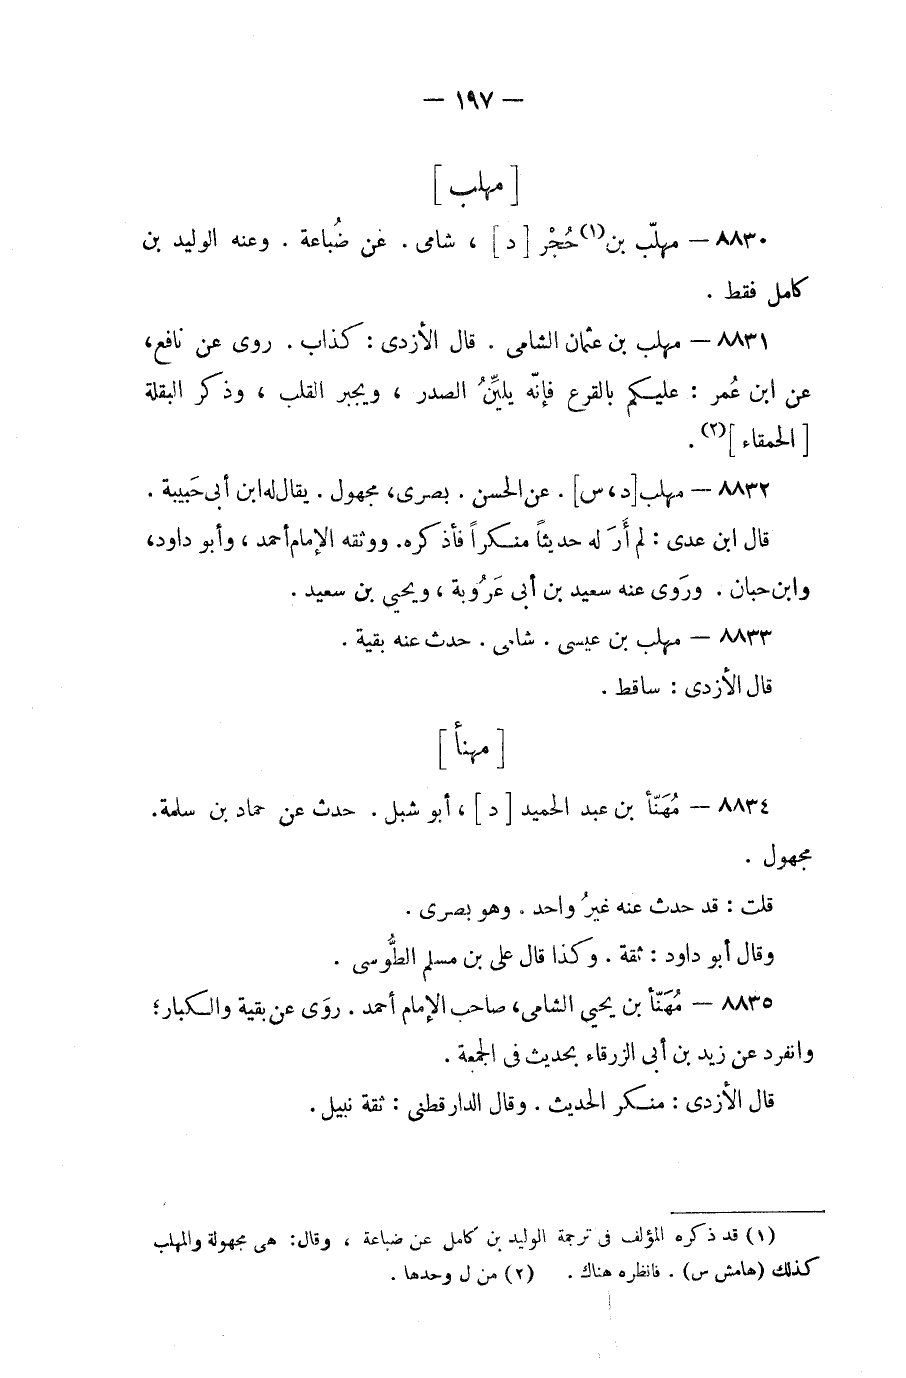 — ١٩٧ —
[ مهلب ]
٨٨٣٠ — مهلّب بن(١) حُجْر [ د ] ، شامى . عن ضُباعة . وعنه الوليد بن
كامل فقط .
٨٨٣١ — مهلب بن عثمان الشامى . قال الأزدى : كذاب . روى عن نافع،
عن ابن عُمر : عليكم بالقرع فإنّه يليِّنُ الصدر ، ويجبر القلب ، وذكر البقلة
[ الحمقاء ](٢) .
٨٨٣٢ — مهلب [د، س] . عن الحسن . بصرى، مجهول . يقال له ابن أبى حَبيبة .
قال ابن عدى : لم أَرَ له حديثاً منكراً فأذكره. ووثقه الإمام أحمد ، وأبو داود،
وابن حبان . ورَوى عنه سعيد بن أبى عَرُوبة ، ويحيى بن سعيد .
٨٨٣٣ — مهلب بن عيسى . شامى . حدث عنه بقية .
قال الأزدى : ساقط .
[ مهنأ ]
٨٨٣٤ — مُهَنّأ بن عبد الحميد [ د ] ، أبو شبل . حدث عن حماد بن سلمة.
مجهول .
قلت : قد حدث عنه غيرُ واحد . وهو بصرى .
وقال أبو داود : ثقة . وكذا قال على بن مسلم الطُّوسى .
٨٨٣٥ — مُهَنّأ بن يحيى الشامى، صاحب الإمام أحمد . روَى عن بقية والكبار؛
وانفرد عن زيد بن أبى الزرقاء بحديث فى الجمعة .
قال الأزدى : منكر الحديث . وقال الدارقطنى : ثقة نبيل .
(١) قد ذكره المؤلف فى ترجمة الوليد بن كامل عن ضباعة ، وقال: هى مجهولة والمهلب
كذلك (هامش س) . فانظره هناك . (٢) من ل وحدها .